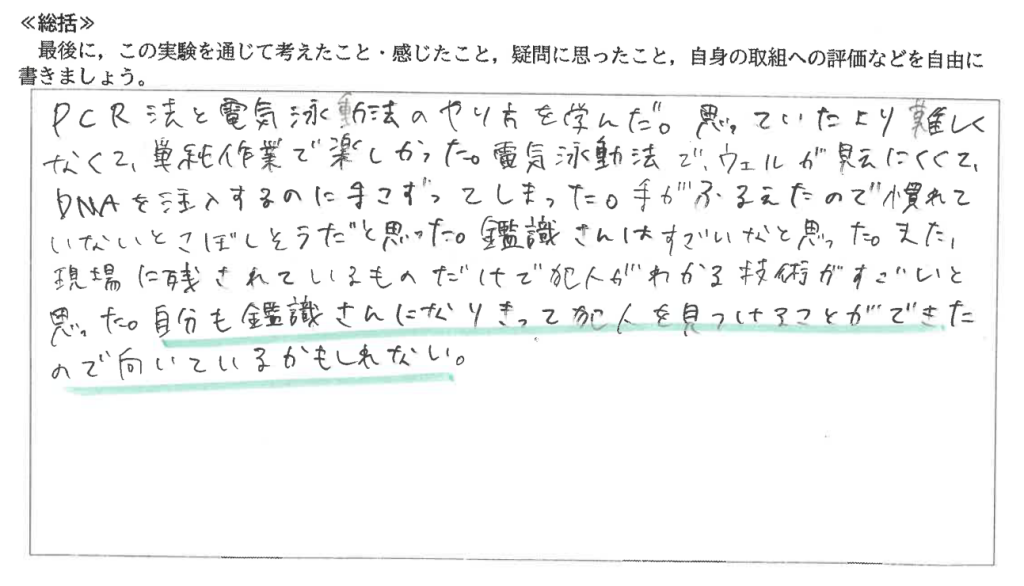 ≪総括≫
最後に，この実験を通じて考えたこと・感じたこと，疑問に思ったこと，自身の取組への評価などを自由に
書きましょう。
PCR法と電気泳動法のやり方を学んだ。思っていたより難しく
なくて、単純作業で楽しかった。電気泳動法で、ウェルが見えにくくて、
DNAを注入するのに手こずってしまった。手がふるえたので慣れて
いないとこぼしそうだと思った。鑑識さんはすごいなと思った。また、
現場に残されているものだけで犯人がわかる技術がすごいと
思った。自分も鑑識さんになりきって犯人を見つけることができた
ので向いているかもしれない。